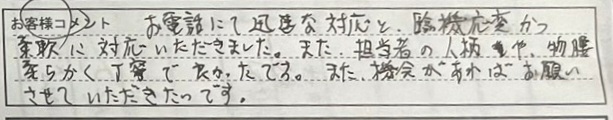 お客様コメント お電話にて迅速な対応と、臨機応変かつ
柔軟に対応いただきました。また、担当者の人柄や、物腰
柔らかく丁寧で良かったです。また、機会があればお願い
させていただきたいです。